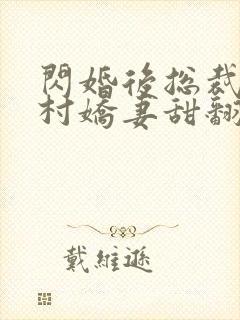 閃婚後總裁
村嬌妻甜翻
戴維遜